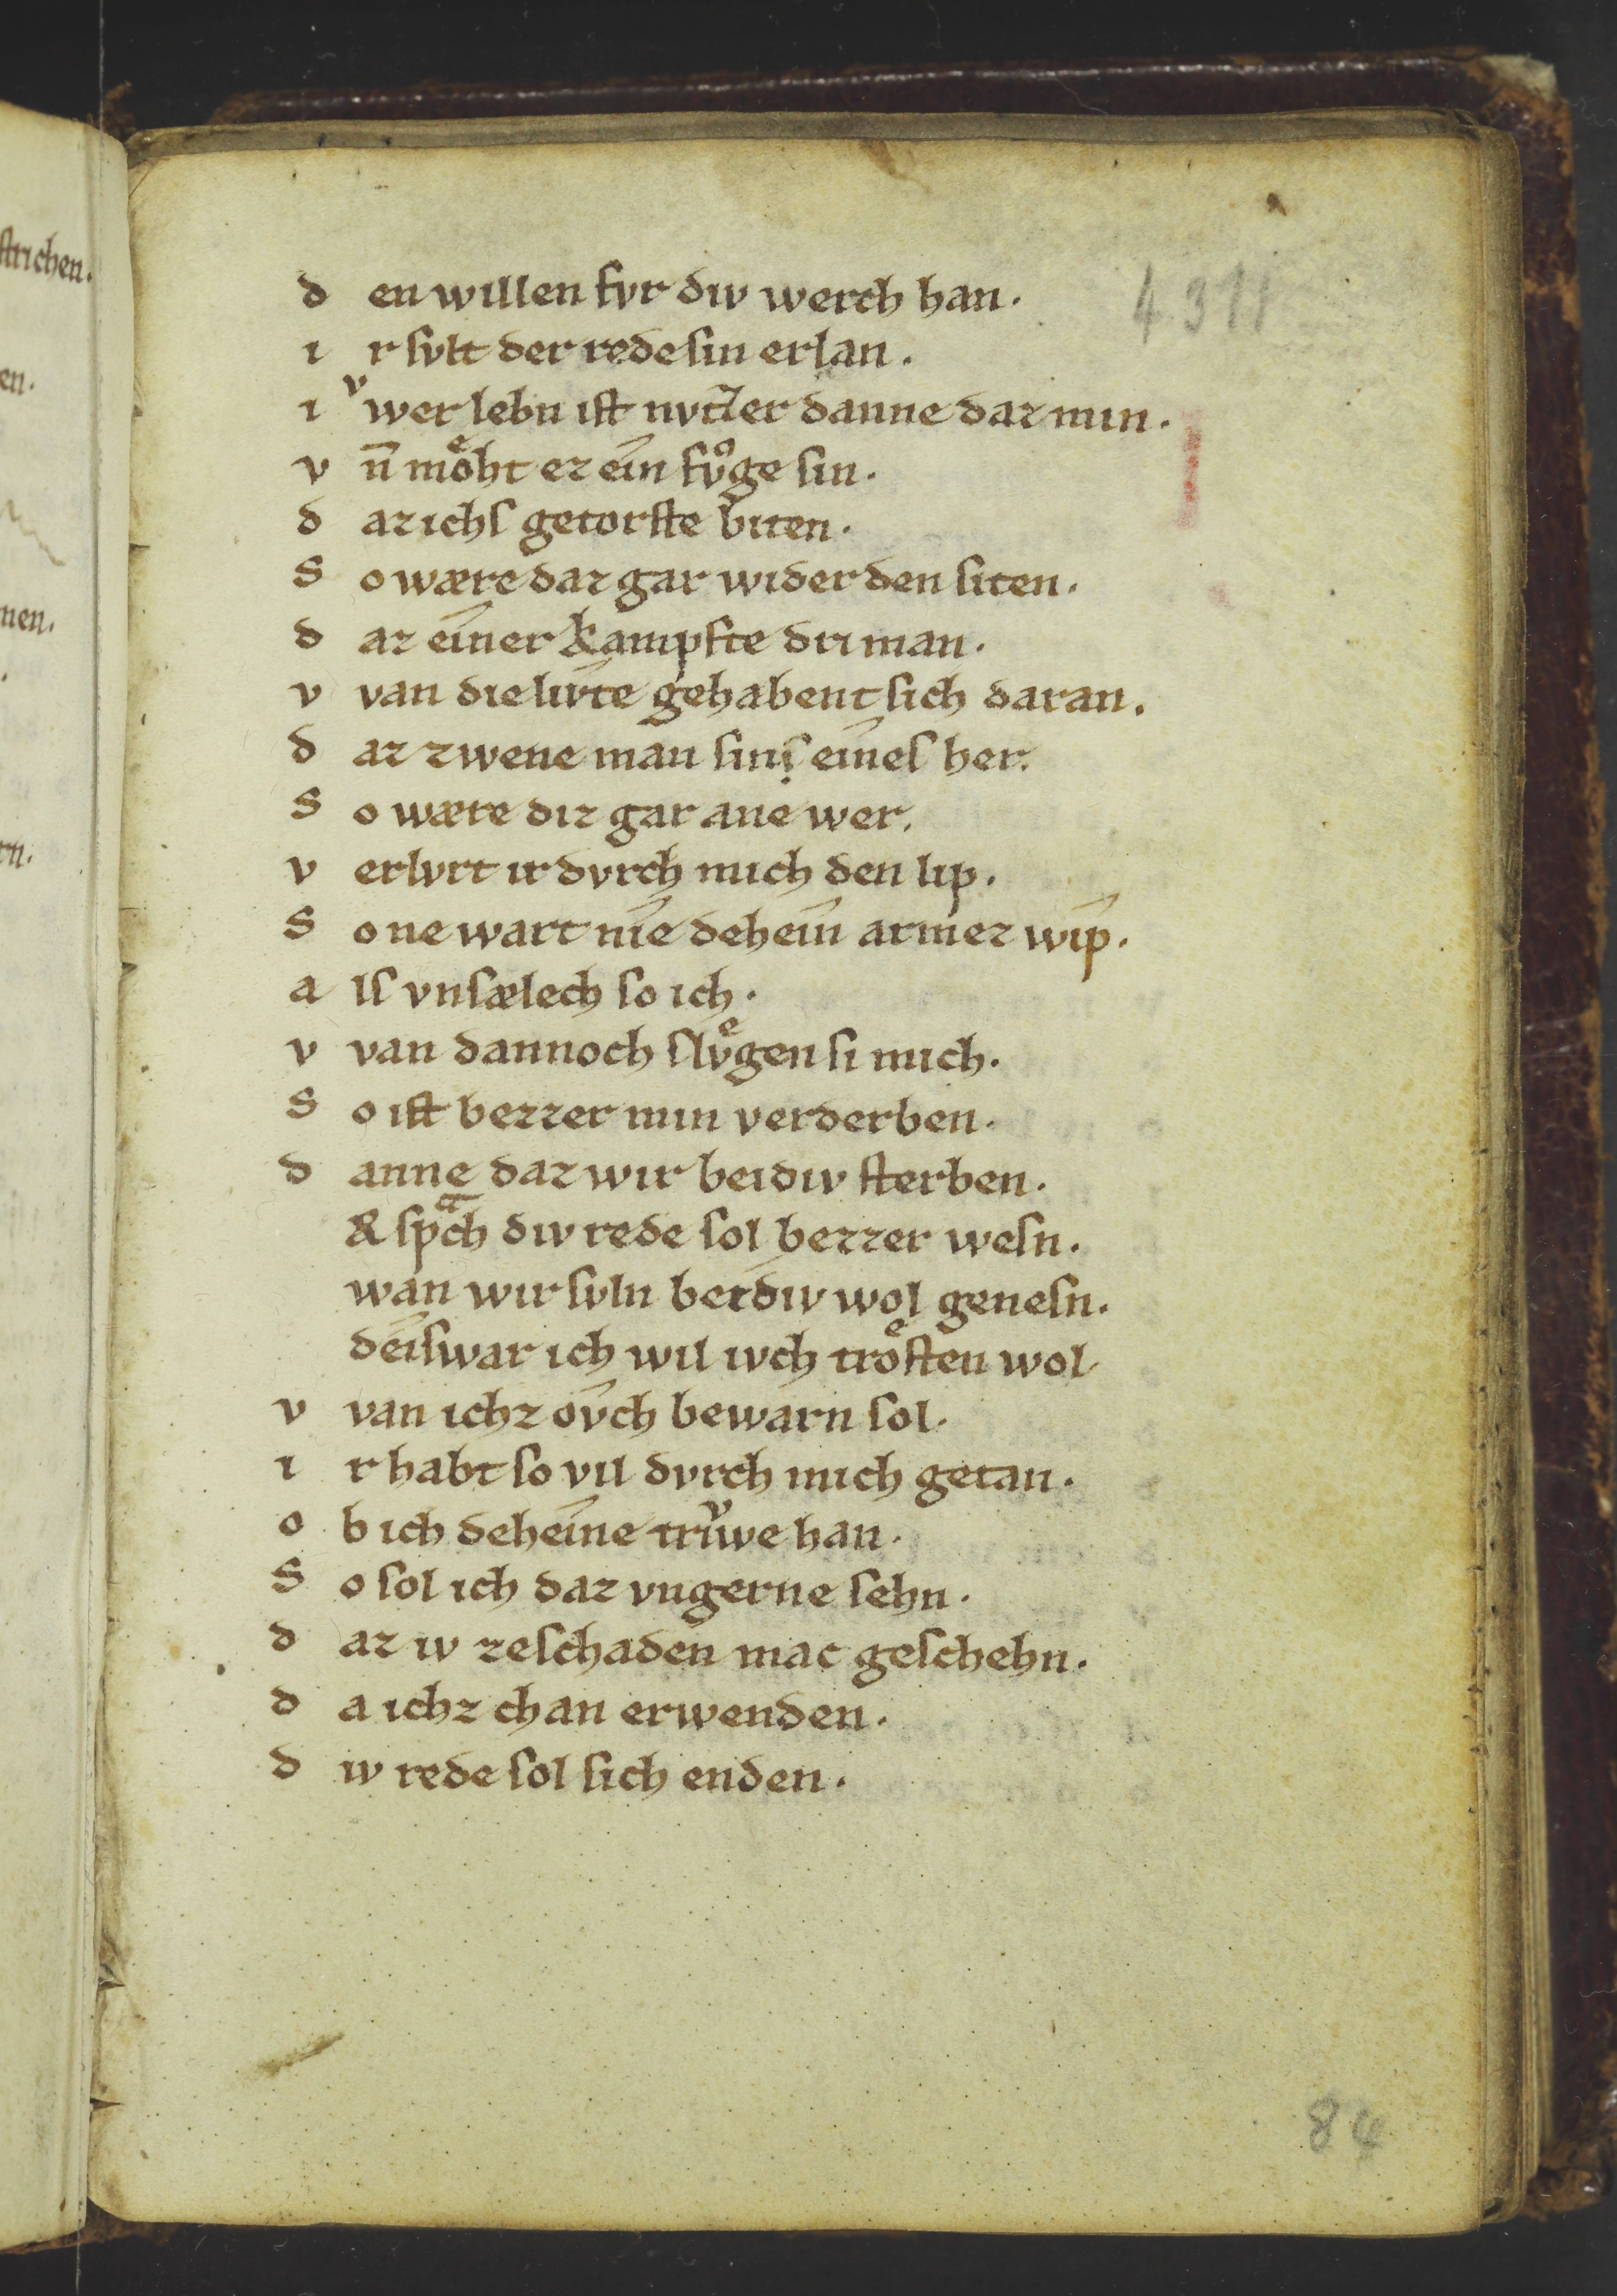 ſtrichen.
en.
nen.
rn.
4311
d en willen fvr div werch han.
i r ſvlt der rede ſin erlan.
i vͮwer lebn iſt nvtzer danne daz min.
v n̄ moͤht ez ein fvͦge ſin.
d az ichſ getorſte biten.
S o wære daz gar wider den ſiten.
d az einer kampfte dri man.
v van die livte gehabent ſich daran.
d az zwene man ſinſ̣ eineſ her.
S o wære diz gar ane wer.
v erlvrt ir dvrch mich den lip.
S o ne wart nie dehein armez wip.
a lſ vnſælech ſo ich.
v van dannoch ſlvͤgen ſi mich.
S o iſt bezzer min verderben.
d anne daz wir beidiv ſterben.
Er ſpͣch div rede ſol bezzer weſn.
wan wir ſvln beidiv wol geneſn.
deiſwar ich wil ivch troͤſten wol.
v van ichz ovch bewarn ſol.
i r habt ſo vil dvrch mich getan.
o b ich deheine triͮwe han.
S o ſol ich daz vngerne ſehn.
d az iv zeſchaden mac geſchehn.
d a ichz chan erwenden.
d iv rede ſol ſich enden.
84